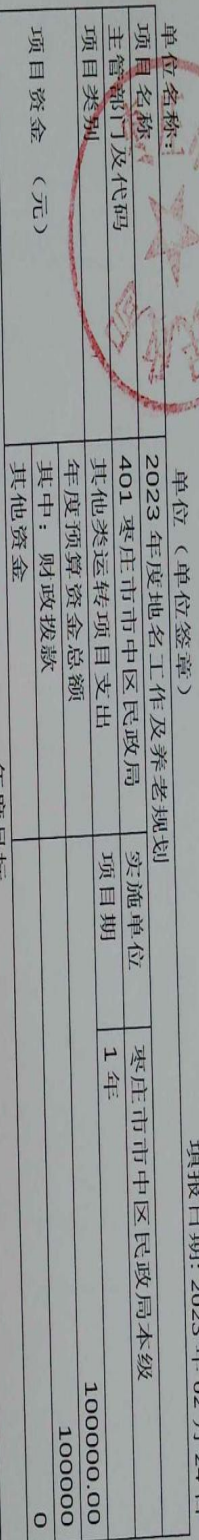 单位名称： 单位（单位签章） 填报日期：2023 年 02 月 24 日
项目名称 2023 年度地名工作及养老规划
主管部门及代码 401 枣庄市市中区民政局 实施单位 枣庄市市中区民政局本级
项目类别 其他类运转项目支出 项目期 1 年
项目资金（元） 年度预算资金总额 100000.00
其中：财政拨款 100000
其他资金 0
年度目标